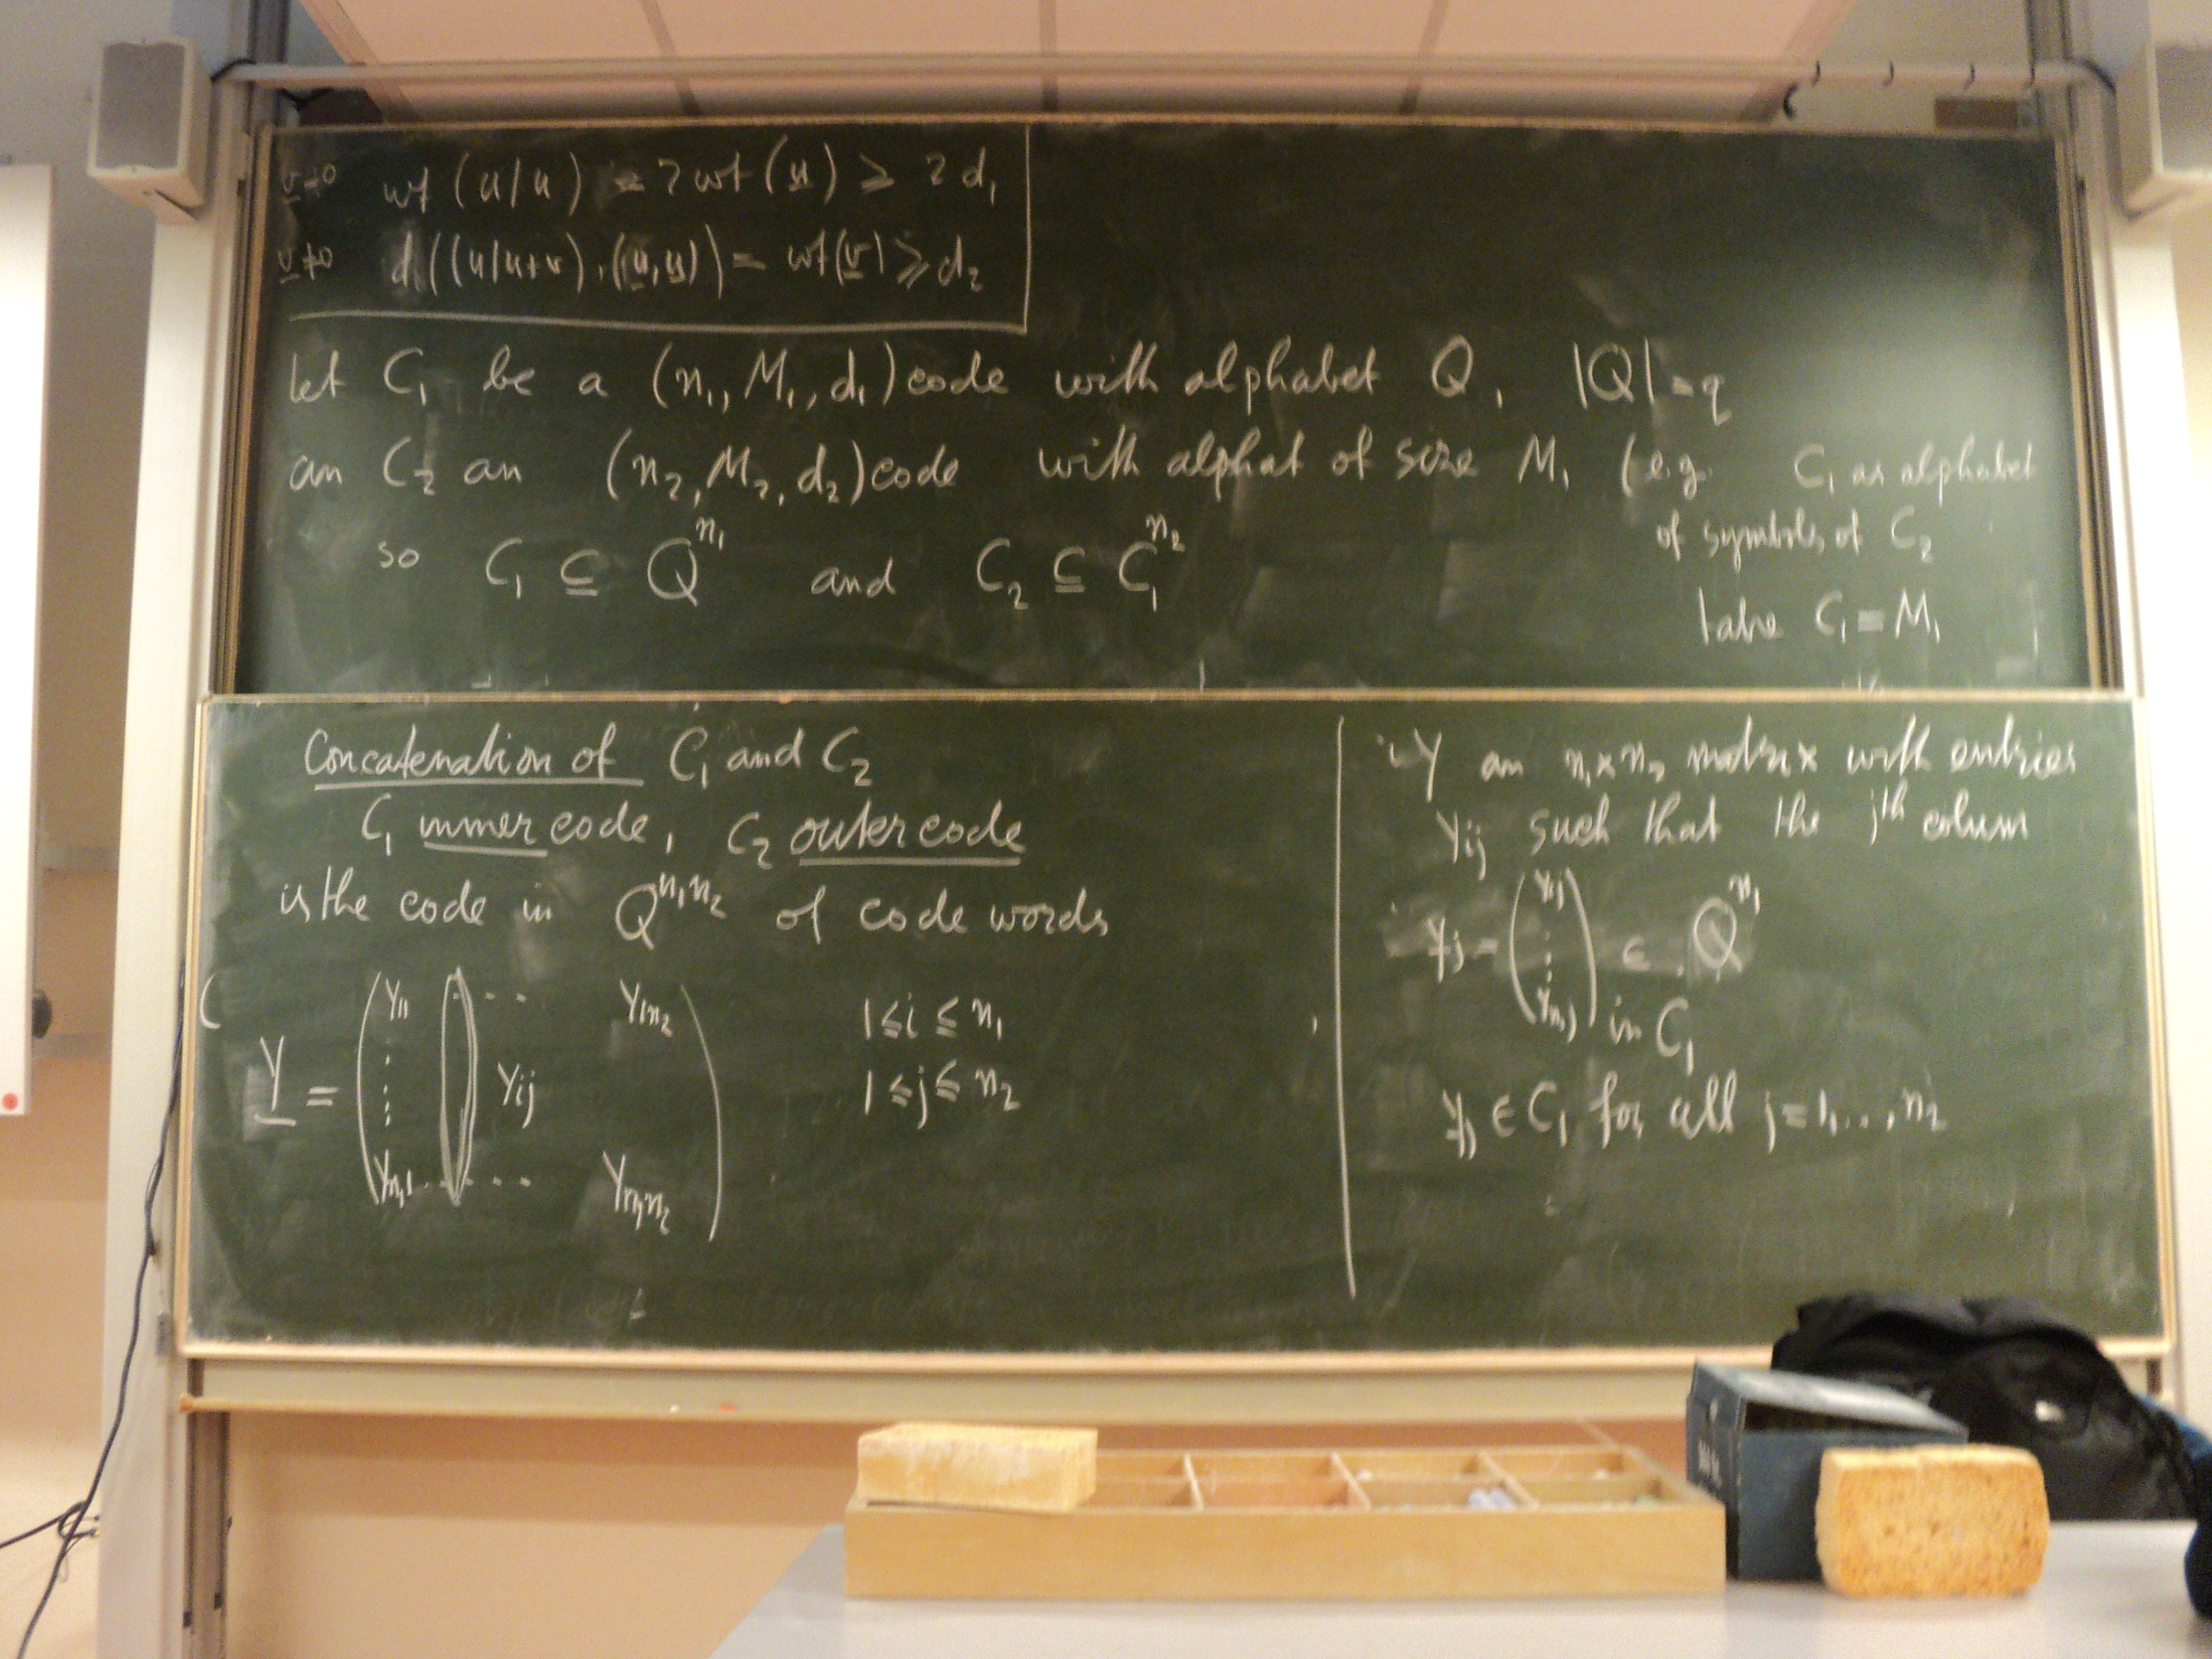 v=0 wt (u/u) = 2 wt (u) ≥ 2 d₁
v≠0 d((u/u+v), (u,u)) = wt(v) ≥ d₂
Let C₁ be a (n₁, M₁, d₁) code with alphabet Q, |Q| = q
an C₂ an (n₂, M₂, d₂) code with alphat of size M₁ (e.g. C₁ as alphabet
of symbols of C₂
so C₁ ⊆ Q^n₁ and C₂ ⊆ C₁^n₂
take C₁ = M₁
Concatenation of C₁ and C₂
C₁ inner code, C₂ outer code
is the code in Q^n₁n₂ of code words
Y = (y₁₁ ... y₁n₂
⋮ yij
yn₁1 ... yn₁n₂)
1 ≤ i ≤ n₁
1 ≤ j ≤ n₂
Y an n₁×n₂ matrix with entries
yij such that the jth colum
yj = (y₁j ⋮ yn₁j) ∈ Q^n₁
in C₁
yj ∈ C₁ for all j=1,...,n₂